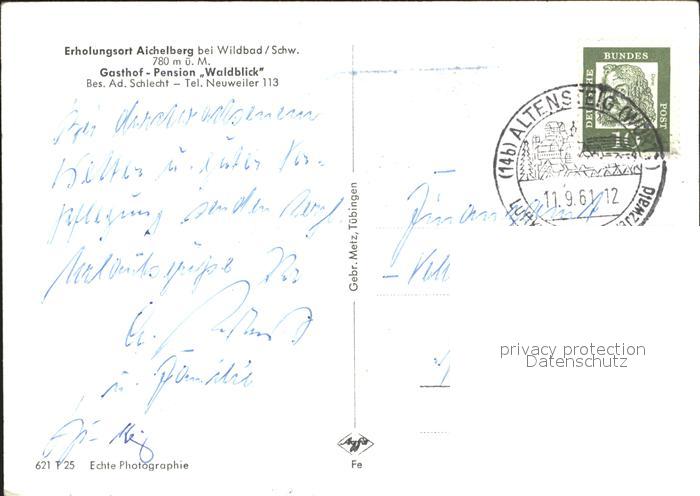 Erholungsort Aichelberg bei Wildbad / Schw.
780 m ü. M.
Gasthof - Pension „Waldblick"
Bes. Ad. Schlecht — Tel. Neuweiler 113
Bei durchwachsenem
Wetter u. guter Ver-
pflegung senden herzl.
Urlaubsgrüße Ihr
u. Familie
Gebr. Metz, Tübingen
DEUTSCHE BUNDES POST
10
(14b) ALTENSTEIG (WÜRTT)
11.9.61.12
Luft
arzwald
Finanzamt
privacy protection
Datenschutz
621 T 25 Echte Photographie
Agfa
Fe